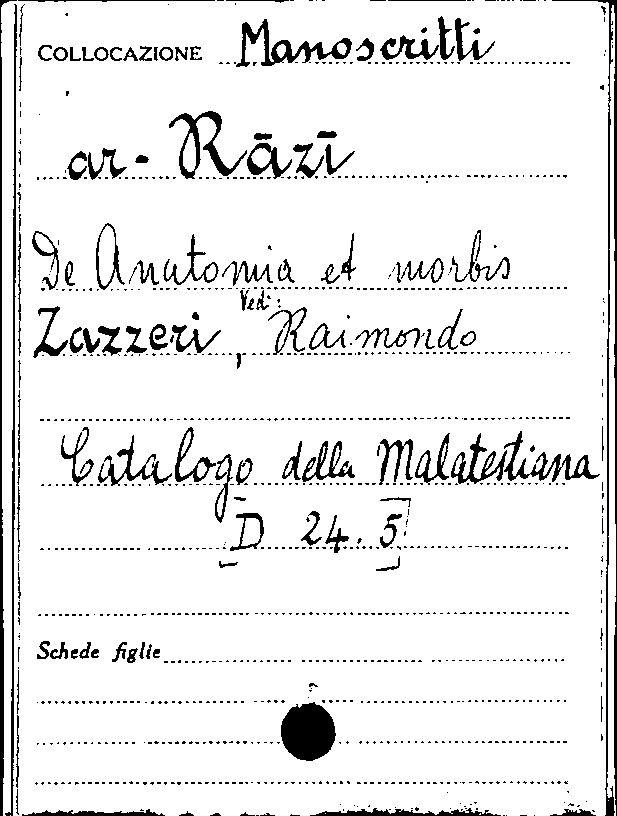 COLLOCAZIONE Manoscritti
ar-Rāzī
De Anatomia et morbis
Vedi:
Zazzeri, Raimondo
Catalogo della Malatestiana
[D 24.5]
Schede figlie